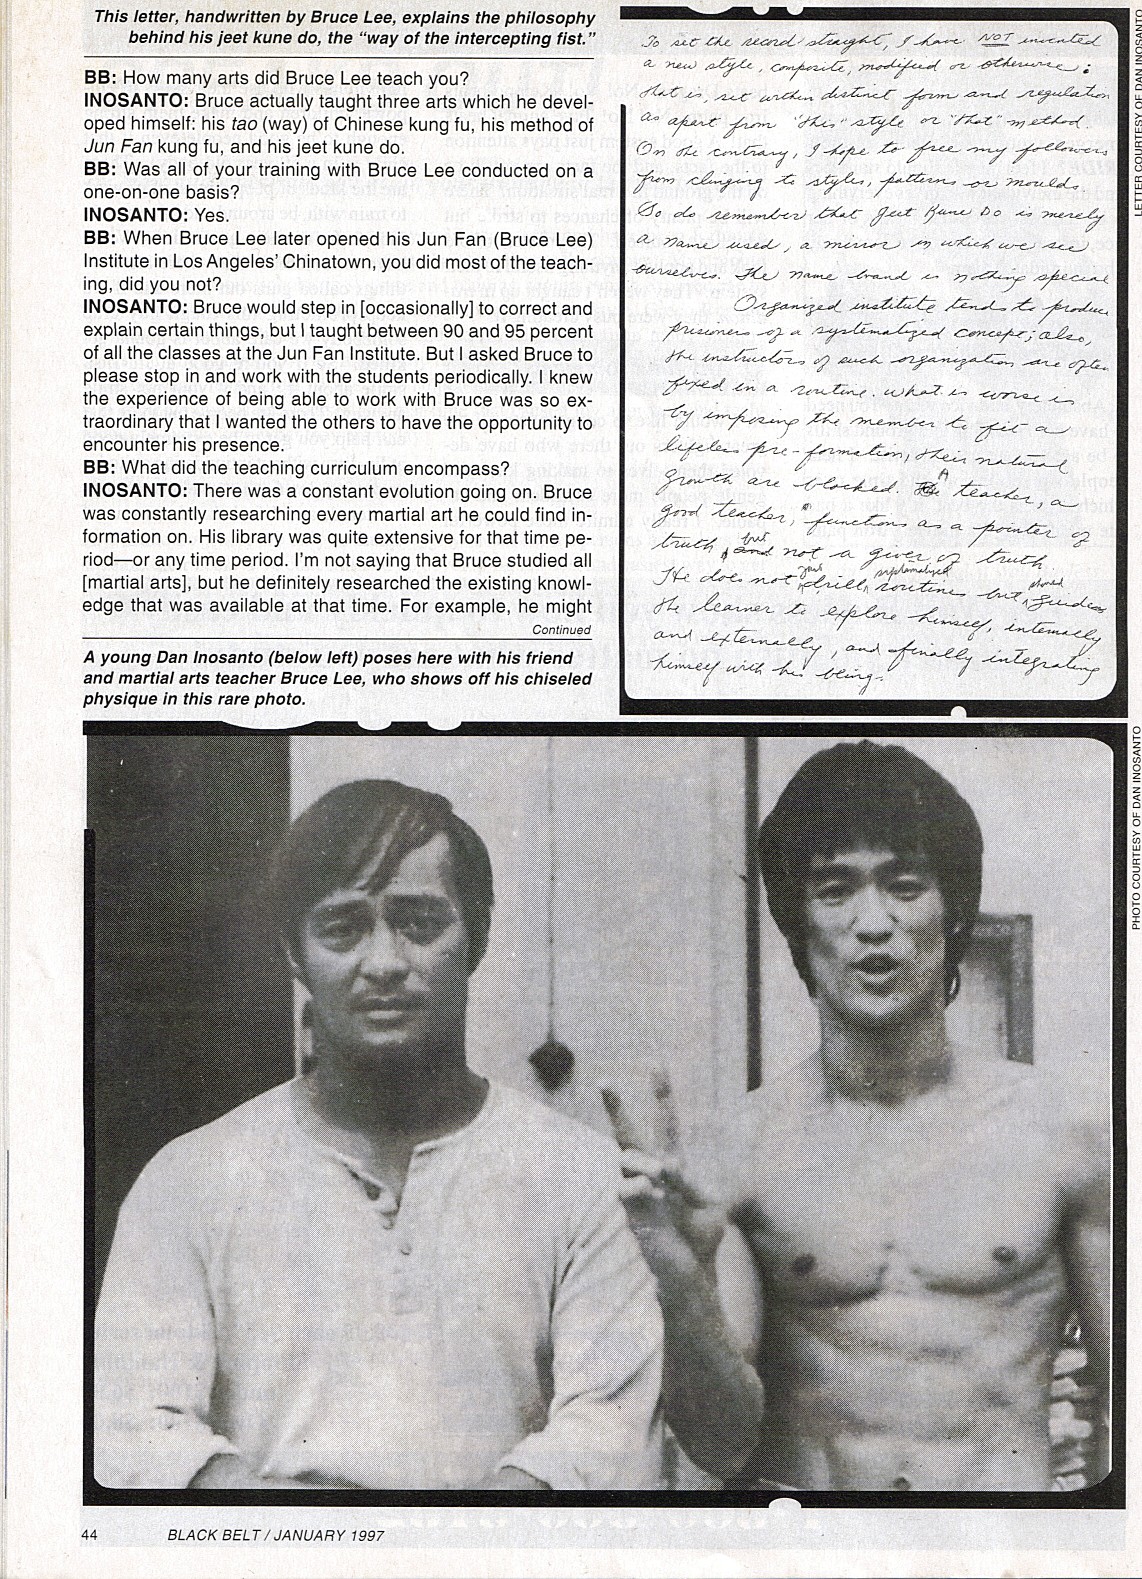 This letter, handwritten by Bruce Lee, explains the philosophy
behind his jeet kune do, the “way of the intercepting fist.”
BB: How many arts did Bruce Lee teach you?
INOSANTO: Bruce actually taught three arts which he devel-
oped himself: his tao (way) of Chinese kung fu, his method of
Jun Fan kung fu, and his jeet kune do.
BB: Was all of your training with Bruce Lee conducted on a
one-on-one basis?
INOSANTO: Yes.
BB: When Bruce Lee later opened his Jun Fan (Bruce Lee)
Institute in Los Angeles’ Chinatown, you did most of the teach-
ing, did you not?
INOSANTO: Bruce would step in [occasionally] to correct and
explain certain things, but I taught between 90 and 95 percent
of all the classes at the Jun Fan Institute. But I asked Bruce to
please stop in and work with the students periodically. I knew
the experience of being able to work with Bruce was so ex-
traordinary that I wanted the others to have the opportunity to
encounter his presence.
BB: What did the teaching curriculum encompass?
INOSANTO: There was a constant evolution going on. Bruce
was constantly researching every martial art he could find in-
formation on. His library was quite extensive for that time pe-
riod—or any time period. I’m not saying that Bruce studied all
[martial arts], but he definitely researched the existing knowl-
edge that was available at that time. For example, he might
Continued
A young Dan Inosanto (below left) poses here with his friend
and martial arts teacher Bruce Lee, who shows off his chiseled
physique in this rare photo.
To set the record straight, I have NOT invented
a new style, composite, modified or otherwise;
that is, set within distinct form and regulation
as apart from "this" style or "that" method.
On the contrary, I hope to free my followers
from clinging to styles, patterns or moulds.
So do remember that Jeet Kune Do is merely
a name used, a mirror in which we see
ourselves. The name brand is nothing special
Organized institute tends to produce
prisoners of a systematized concept; also,
the instructors of such organization are often
fixed in a routine. what is worse is
by imposing the member to fit a
lifeless pre-formation, their natural
growth are blocked. A teacher, a
good teacher, functions as a pointer of
truth, but not a giver of truth.
He does not just drill systematized routines but guides
the learner to explore himself, internally
and externally, and finally integrating
himself with his being.
LETTER COURTESY OF DAN INOSANTO
PHOTO COURTESY OF DAN INOSANTO
44 BLACK BELT / JANUARY 1997